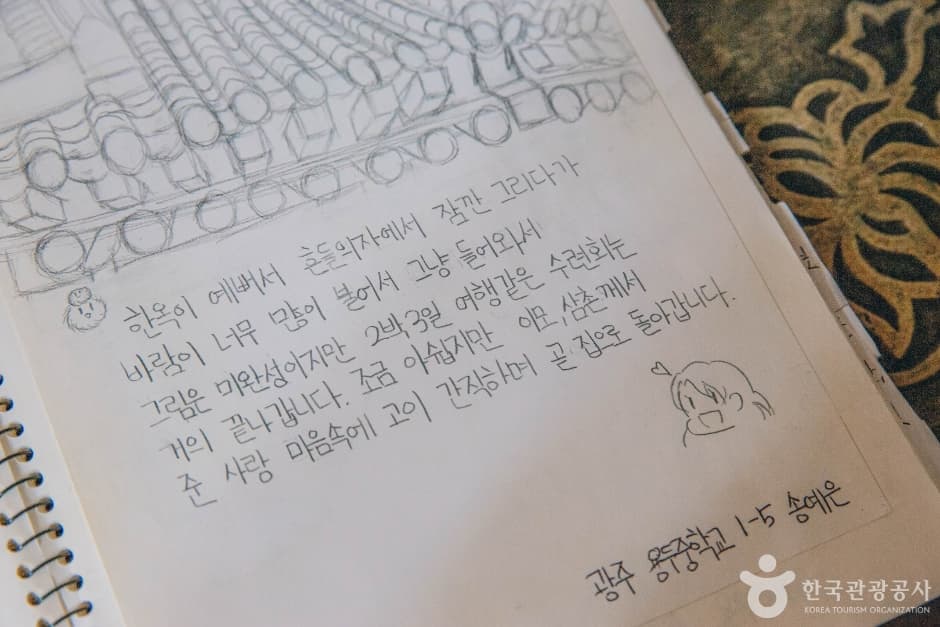 한옥이 예뻐서 흔들의자에서 잠깐 그리다가
바람이 너무 많이 불어서 그냥 들어와서
그림은 미완성이지만 2박3일 여행같은 수련회는
거의 끝나갑니다. 조금 아쉽지만 이모, 삼촌께서
준 사랑 마음속에 고이 간직하며 곧 집으로 돌아갑니다.
광주 용두중학교 1-5 송예은
한국관광공사
KOREA TOURISM ORGANIZATION